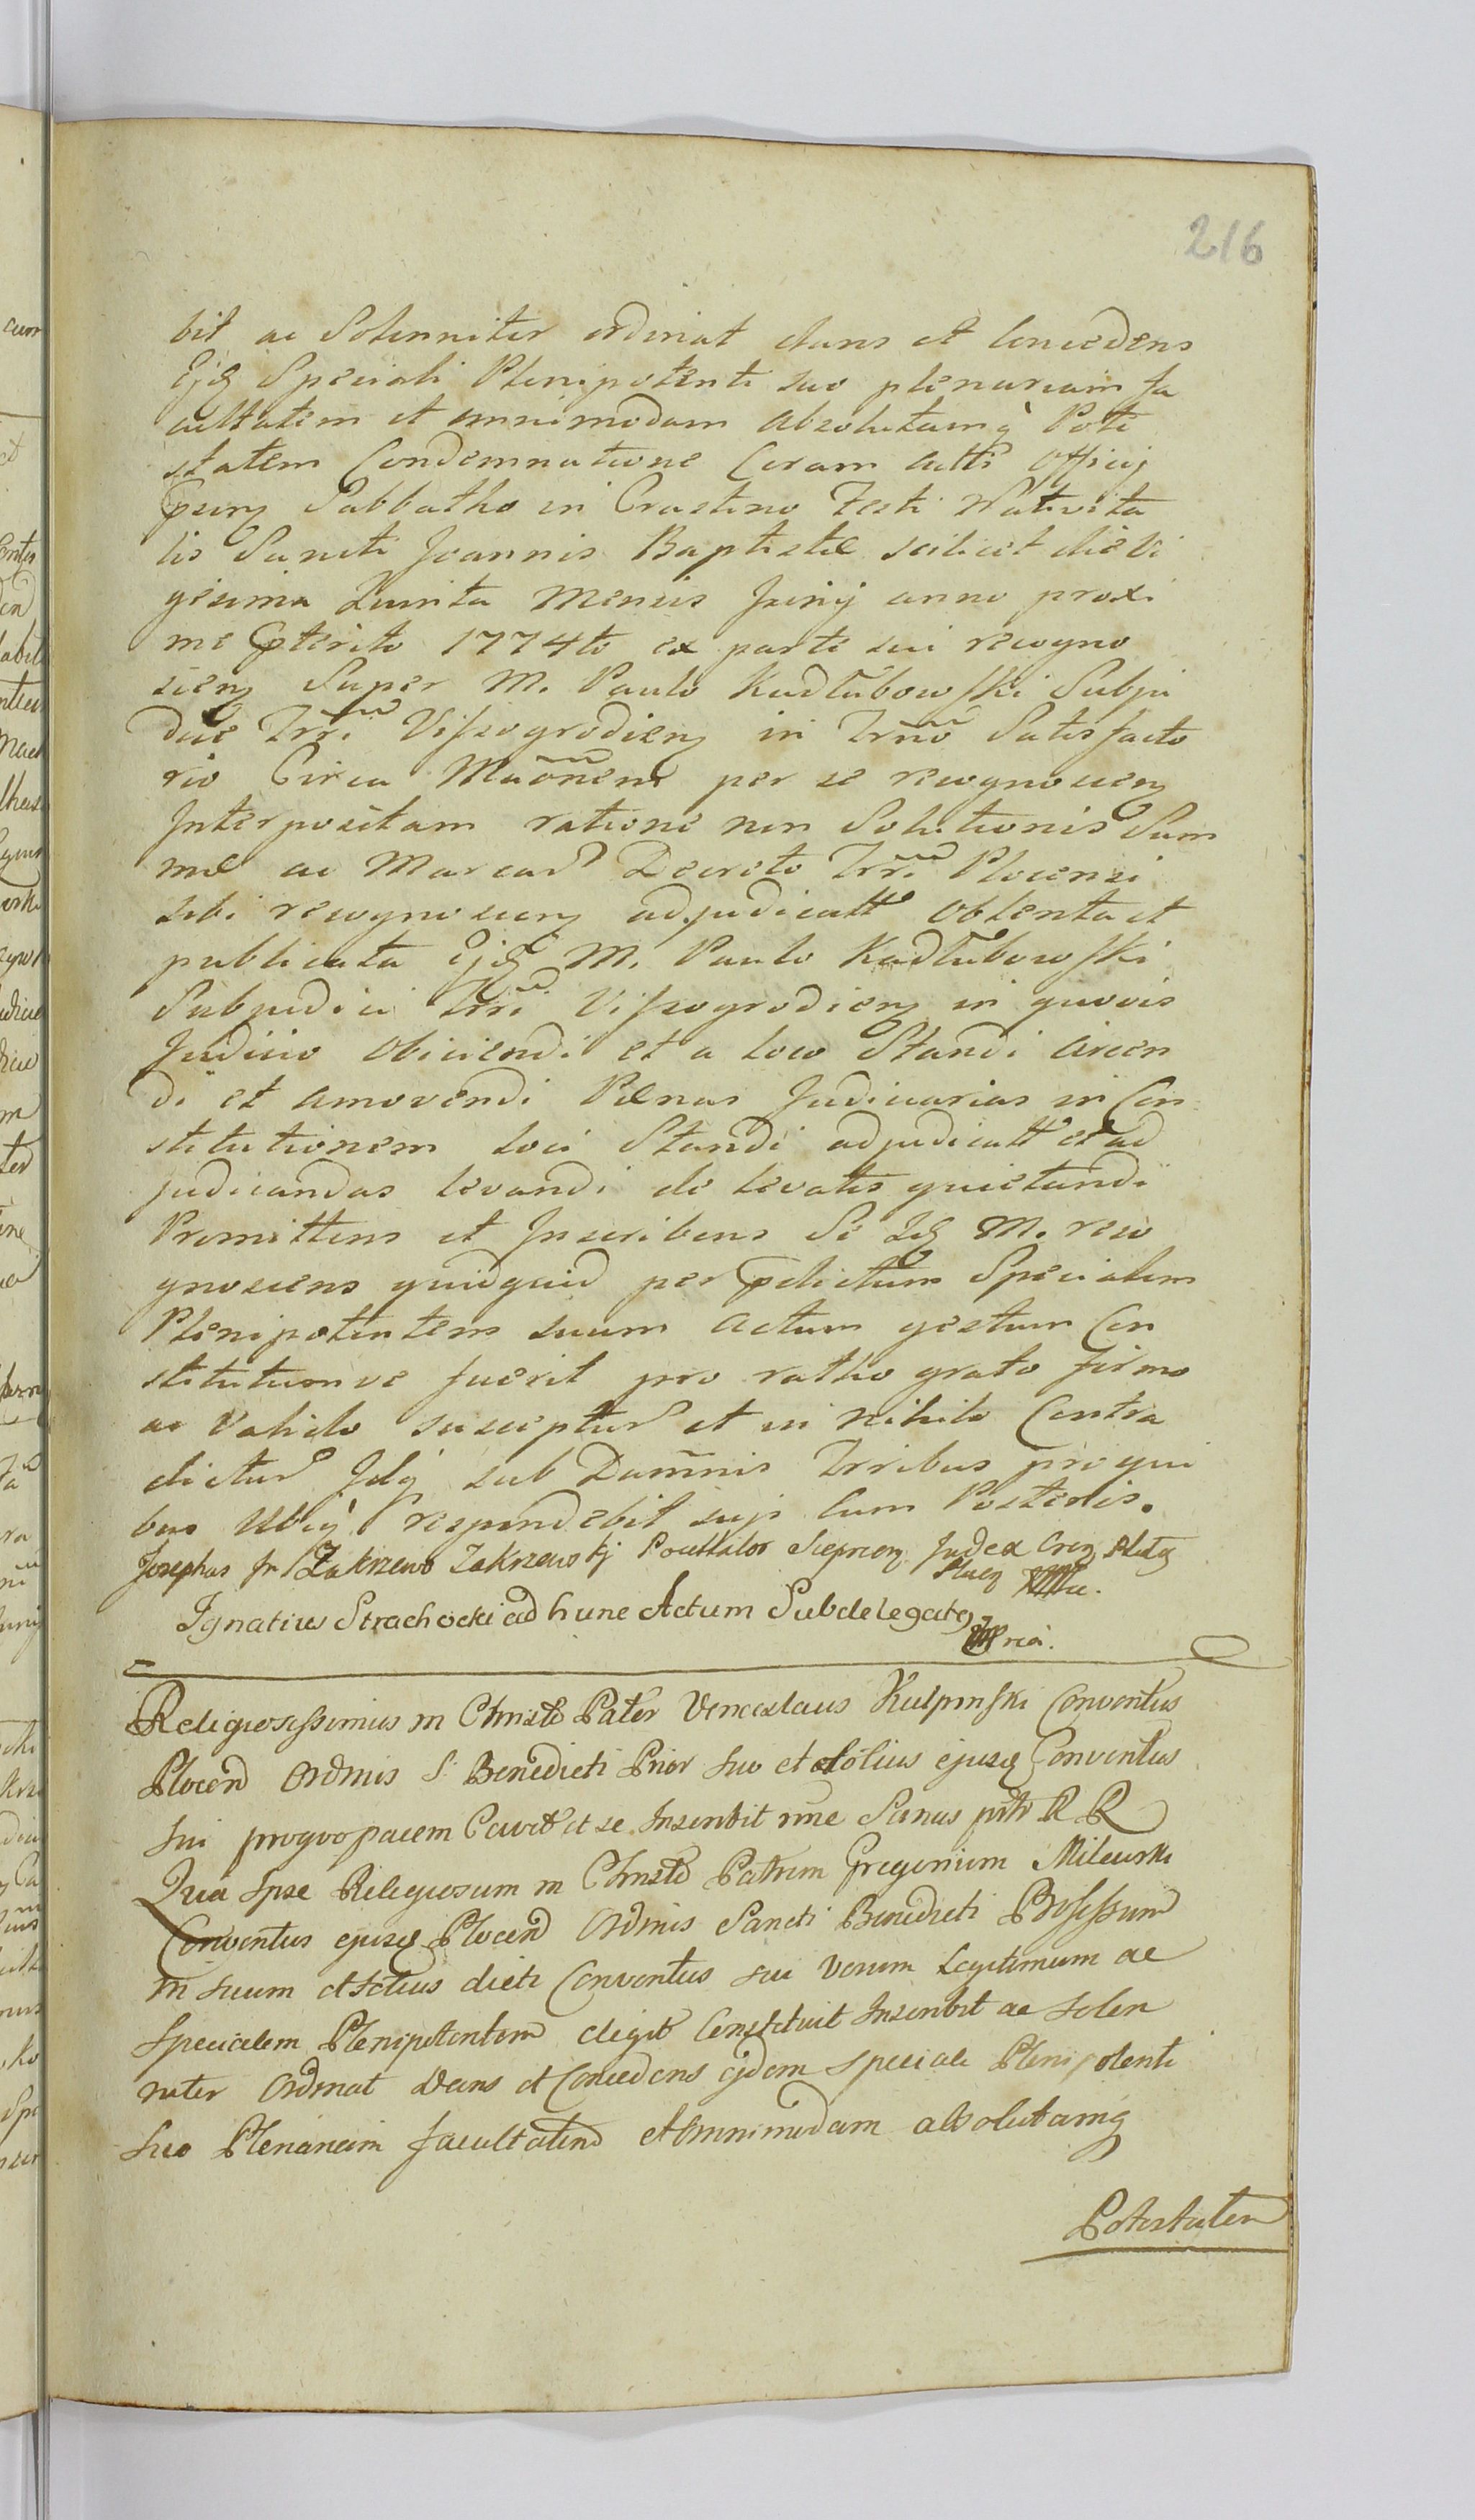 216
bit ac Solenniter ordinat dans et Concedens
Ejd Speciali Plenipotenti suo plenariam fa
cultatem et omnimodam absolutamq̀ Pote
statem Condemnatione Coram actis Officij
psen Sabbatho in Crastino Festi Nativita
tis Sancti Joannis Baptistæ scilicet die Vi
gesima Quinta Mensis Junij anno proxi
me pterito 1774to ex parte sui recogno
scen Super M. Paulo Kadłubowski Subju
dice Trri Vissogrodien in Trno Satisfacto
rio Circa Mãonem per se recognoscen
Interpositam ratione non Solutionis Sum
mæ ac Marcar Decreto Trri Plocensi
sibi recognoscen adjudicatt obtenta et
publicata Ejd M. Paulo Kadłubowski
Subjudici Trri Vissogrodien in quovis
Judicio Obiiciendi et a loco Standi arcen
di et amovendi Pænas Judiciarias in Con
stitutionem loci Standi adjudicatt et ad
judicandas levandi de levatis quietandi
Promittens et Inscribens Se Id M. reco
gnoscens quidquid per pdictum Specialem
Plenipotentem suum actum gestum Con
stitutumve fuerit pro ratho grato firmo
ac Valido susceptur et in nihilo Contra
dictur Idq sub Damnis Trribus pro qui
bus Ubiq̀ respondebit suji Cum Posteris.
Josephus in Zakrzewo Zakrzewskj Pocillator Sieprcen Judex
Ignatius Strachocki ad hunc Actum Subdelegatg
mpria.
Religiosissimus in Christo Pater Venceslaus Kulpinski Conventus
Plocen Ordinis S. Benedicti Prior suo et totius ejusd Conventus
sui pro quo pacem Cavet et se Inscribit nne Sanus prtr R R
Quia Ipse Religiosum in Christo Patrem Gregorium Milewski
Conventus ejusd Plocen Ordinis Sancti Benedicti Professum
in suum et totius dicti Conventus sui Verum Legitimum ac
Specialem Plenipotentem elegit Constituit Inscribit ac Solen
niter Ordinat Dans et Concedens ejdem Speciali Plenipotenti
suo Plenariam facultatem et omnimodam absolutamq
Potestatem